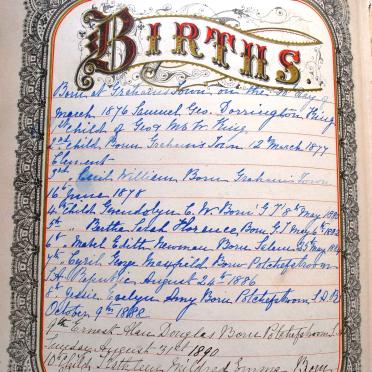 BIRTHS.
Born at Grahamstown on the
March 1876 Samuel Geo. Dorrington King
1st Child of Geo & W. King
2nd Child Born Graham's Town 12th March 1877
Clement
3rd " Cecil William Born Graham's Town
16th June 1878
4th Child Gwendolyn C. W. Born G T 8th May 1880
5th " Bertha Leah Florence Born G T May 6th 1882
6th " Mabel Edith Newman Born 25 May 1884
7th " Cyril George Maxfield Born Potchefstroom
S A Republic August 24th 1886
8th Jessie Evelyn Amy Born Potchefstroom S A R
October 9th 1888
9th Ernest Alan Douglas Born Potchefstroom
Sunday August 31st 1890
10th Child Kathleen Mildred Emma Born